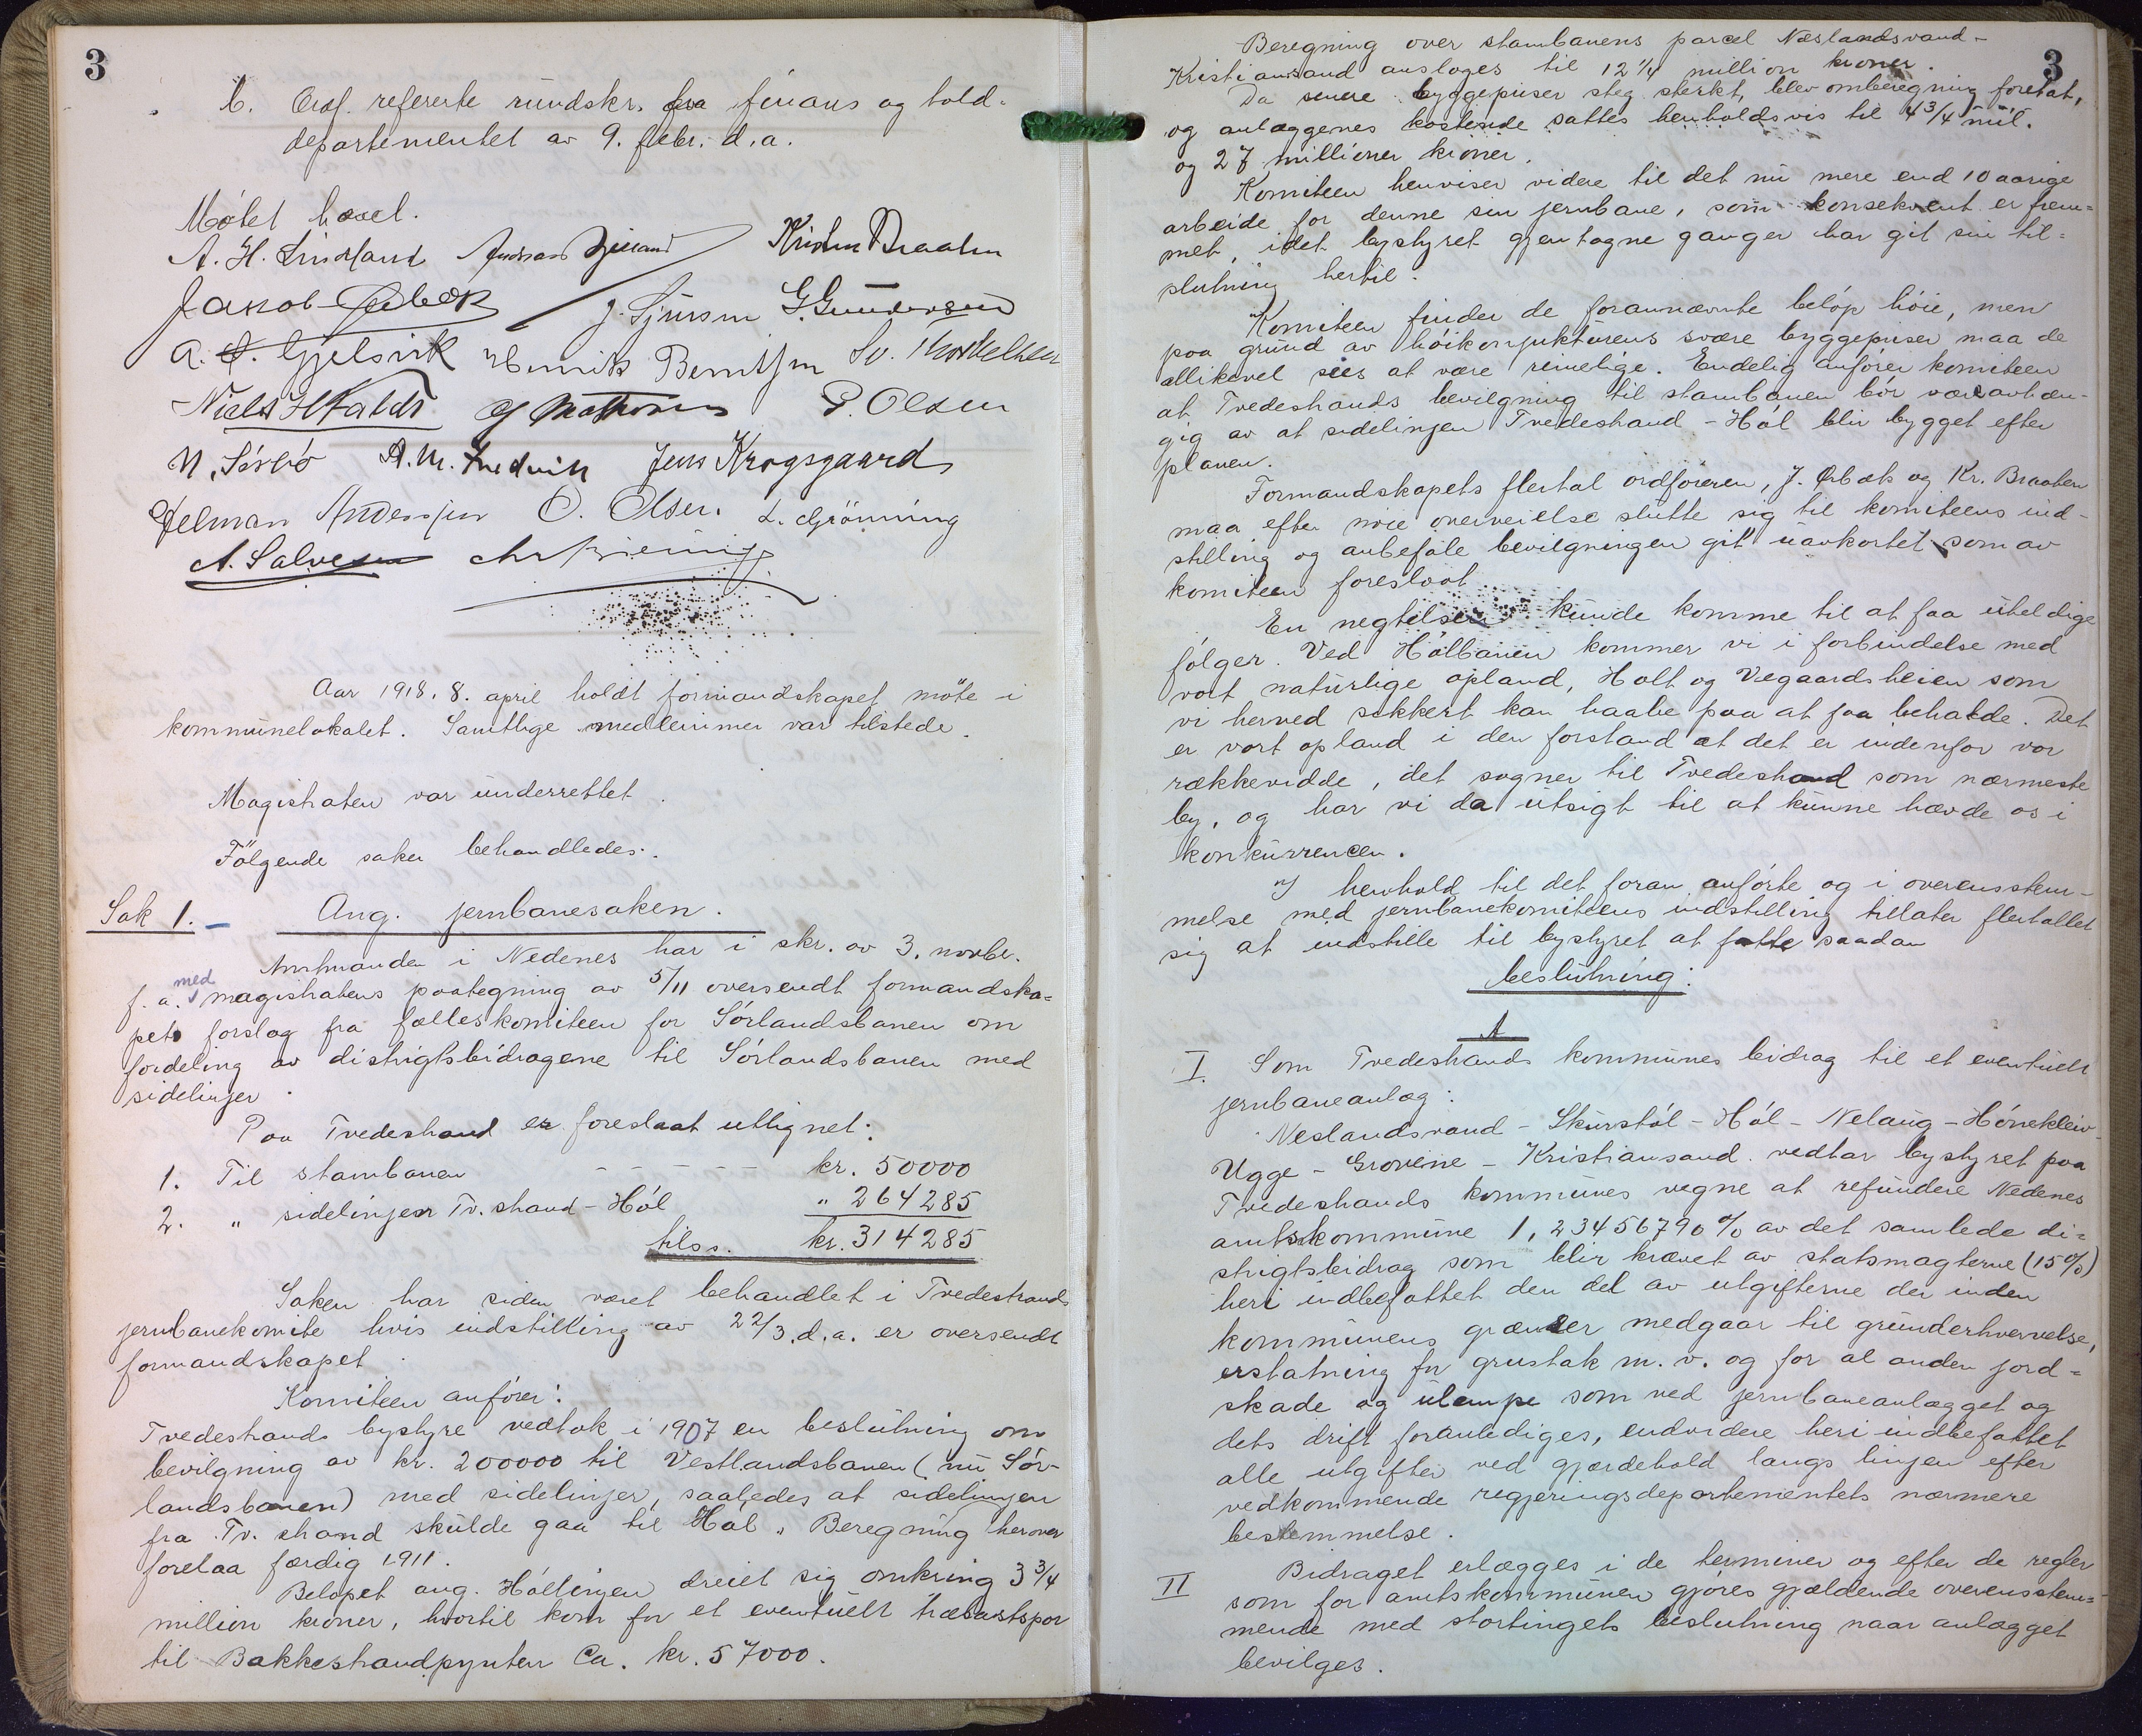 3
b. Ordf. refererte rundskr. fra finans og told-
departementet av 9. febr. d.a.
Møtet hævet.
A. H. Lindland Kristen Braaten
Jakob Ørbek J. Sjursen G. Gundersen
A. Gjelsvik Henrik Berntsen Sv. Thorkelsen
Niels P. Olsen
N. Sørbø Jens Krogsgaard
Helman Anderssen O. Olsen. L. Grönning
A. Salvesen
Aar 1918. 8. april holdt formandskapet möte i
kommunelokalet. Samtlige medlemmer var tilstede.
Magistraten var underrettet.
Fölgende saker behandledes:
Sak 1. – Ang. jernbanesaken.
Amtmanden i Nedenes har i skr. av 3. novbr.
f.a. med magistratens paategning av 5/11 oversendt formandska=
pets forslag fra fælleskomiteen for Sørlandsbanen om
fordeling av distrigtsbidragene til Sørlandsbanen med
sidelinjer.
Paa Tvedestrand er foreslaat utlignet:
1. Til stambanen - - - - - - kr. 50000
2. " sidelinjen Tv.strand – Hól " 264285
tils. kr. 314285
Saken har siden været behandlet i Tvedestrands
jernbanekomite hvis indstilling av 22/3.d.a. er oversendt
formandskapet.
Komiteen anfører:
Tvedestrands bystyre vedtok i 1907 en beslutning om
bevilgning av kr. 200000 til Vestlandsbanen (nu Sør-
landsbanen) med sidelinjer, saaledes at sidelinjen
fra Tv.strand skulde gaa til Hól. Beregning herover
forelaa færdig 1911.
Beløpet ang. Hóllinjen dreiet sig omkring 3 3/4
million kroner, hvortil kom for et eventuelt trælastspor
til Bakkestrandpynten Ca. kr. 57000.
3
Beregning over stambanens parcel Næslandsvand-
Kristiansand ansloges til 12 1/4 million kroner.
Da senere byggepriser steg sterkt, blev omberegning foretat,
og anlæggenes kostende sattes henholdsvis til 4 3/4 mil.
og 27 millioner kroner.
Komiteen henviser videre til det nu mere end 10 aarige
arbeide for denne sin jernbane, som konsekvent er frem=
met, idet bystyret gjentagne ganger har git sin til=
slutning hertil.
Komiteen finder de forannævnte beløp høie, men
paa grund av høikonjunkturens svære byggepriser maa de
allikevel sies at være rimelige. Endelig anfører komiteen
at Tvedestrands bevilgning til stambanen bør være avhæn-
gig av at sidelinjen Tvedestrand – Hól blir bygget efter
planen.
Formandskapets flertal ordføreren, J. Ørbæk og Kr. Braaten
maa efter nøie overveielse slutte sig til komiteens ind-
stilling og anbefale bevilgningen git uavkortet som av
komiteen foreslaat.
En negtelse kunde komme til at faa uheldige
følger. Ved Hólbanen kommer vi i forbindelse med
vort naturlige opland, Holt og Vegaardsheien som
vi herved sikkert kan haabe paa at faa beholde. Det
er vort opland i den forstand at det er indenfor vor
rækkevidde, det sogner til Tvedestrand som nærmeste
by, og har vi da utsigt til at kunne hævde os i
konkurrencen.
I henhold til det foran anførte og i overensstem-
melse med jernbanekomiteens indstilling tillater flertallet
sig at indstille til bystyret at fatte saadan
beslutning:
A
I. Som Tvedestrands kommunes bidrag til et eventuelt
jernbaneanlæg:
Neslandsvand – Skurstól – Hól – Nelaug – Hónekleiv-
Ugge – Grovene – Kristiansand vedtar bystyret paa
Tvedestrands kommunes vegne at refundere Nedenes
amtskommune 1,23456790 % av det samlede di=
strigtsbidrag som blir krævet av statsmagterne (15%)
heri indbefattet den del av utgifterne der inden
kommunens grænser medgaar til grunderhvervelse,
erstatning for grustak m.v. og for al anden jord=
skade og ulempe som ved jernbaneanlægget og
dets drift foranlediges, endvidere heri indbefattet
alle utgifter ved gjærdehold langs linjen efter
vedkommende regjeringsdepartementets nærmere
bestemmelse.
II Bidraget erlægges i de terminer og efter de regler
som for amtskommunen gjøres gjældende overensstem=
mende med stortingets beslutning naar anlægget
bevilges.